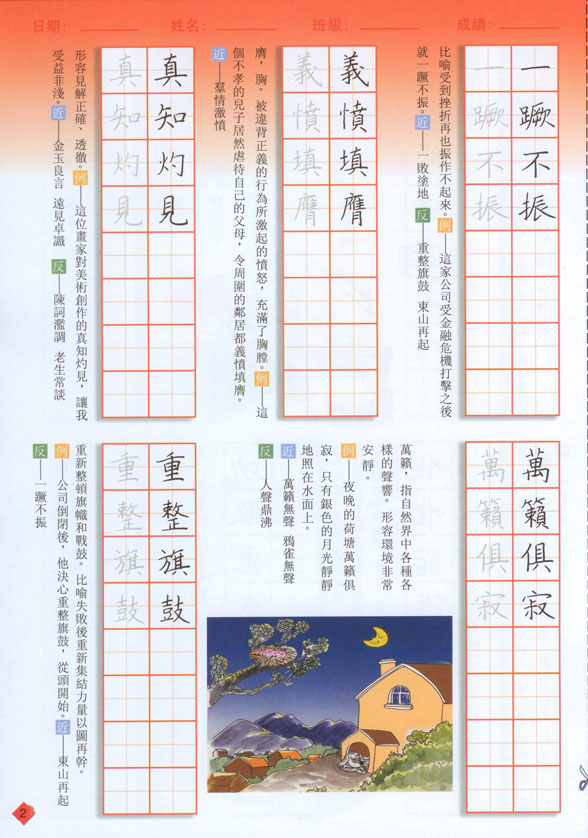 日期：
姓名：
班級：
成績：
一蹶不振
一蹶不振
比喻受到挫折再也振作不起來。例——這家公司受金融危機打擊之後
就一蹶不振。近——一敗塗地 反——重整旗鼓 東山再起
義憤填膺
義憤填膺
膺，胸。被違背正義的行為所激起的憤怒，充滿了胸膛。例——這
個不孝的兒子居然虐待自己的父母，令周圍的鄰居都義憤填膺。
近——羣情激憤
真知灼見
真知灼見
形容見解正確、透徹。例——這位畫家對美術創作的真知灼見，讓我
受益非淺。近——金玉良言 遠見卓識 反——陳詞濫調 老生常談
萬籟俱寂
萬籟俱寂
萬籟，指自然界中各種各
樣的聲響。形容環境非常
安靜。
例——夜晚的荷塘萬籟俱
寂，只有銀色的月光靜靜
地照在水面上。
近——萬籟無聲 鴉雀無聲
反——人聲鼎沸
重整旗鼓
重整旗鼓
重新整頓旗幟和戰鼓。比喻失敗後重新集結力量以圖再幹。
例——公司倒閉後，他決心重整旗鼓，從頭開始。近——東山再起
反——一蹶不振
2